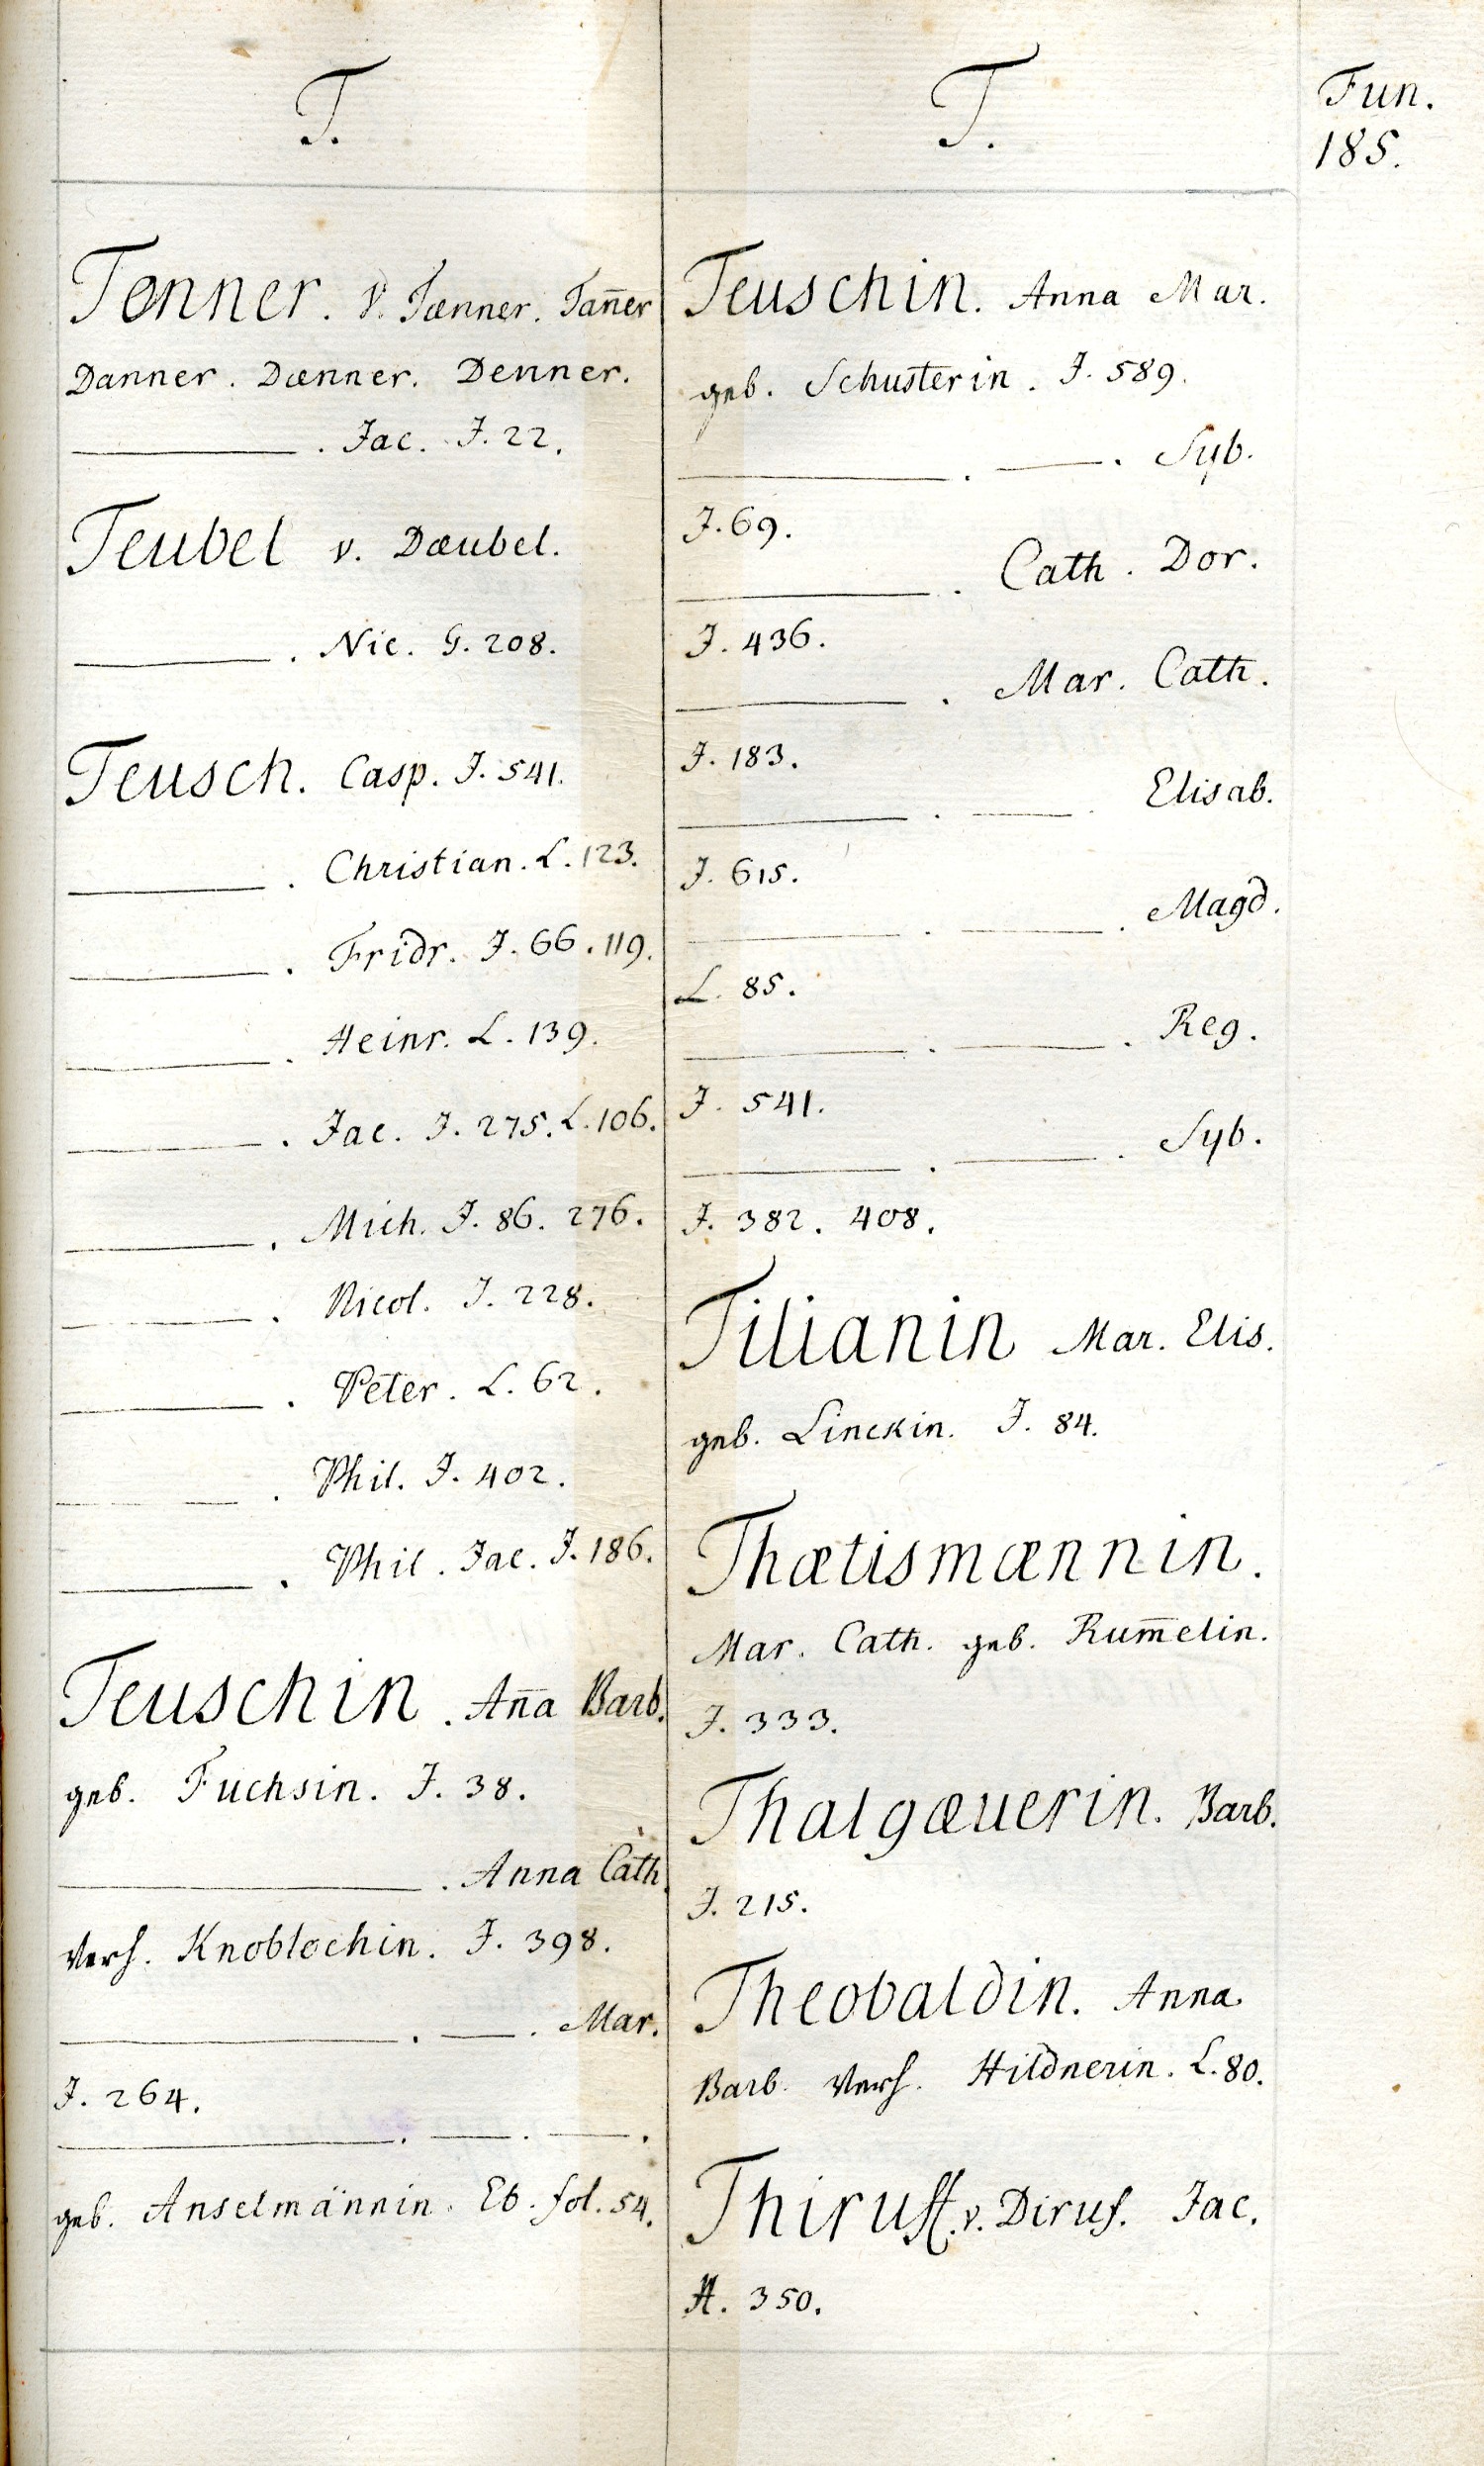 T.
Tenner. v. Tænner. Tan̄er
Danner. Dænner. Denner.
———. Jac. J. 22.
Teubel v. Dæubel.
———. Nic. G. 208.
Teusch. Casp. J. 541.
———. Christian. L. 123.
———. Fridr. J. 66. 119.
———. Heinr. L. 139.
———. Jac. J. 275. L. 106.
———. Mich. J. 86. 276.
———. Nicol. J. 228.
———. Peter. L. 62.
———. Phil. J. 402.
———. Phil. Jac. J. 186.
Teuschin. An̄a Barb.
geb. Fuchsin. J. 38.
———. Anna Cath.
verh. Knoblochin. J. 398.
———. —. Mar.
J. 264.
———. —. —.
geb. Anselmännin. Eb. fol. 54.
T.
Teuschin. Anna Mar.
geb. Schusterin. J. 589.
———. —. Syb.
J. 69.
———. Cath. Dor.
J. 436.
———. Mar. Cath.
J. 183.
———. —. Elisab.
J. 615.
———. —. Magd.
L. 85.
———. —. Reg.
J. 541.
———. —. Syb.
J. 382. 408.
Tilianin Mar. Elis.
geb. Linckin. J. 84.
Thætismænnin.
Mar. Cath. geb. Rum̄elin.
J. 333.
Thalgæuerin. Barb.
J. 215.
Theobaldin. Anna
Barb. verh. Hildnerin. L. 80.
Thiruff. v. Diruf. Jac.
A. 350.
Fun.
185.